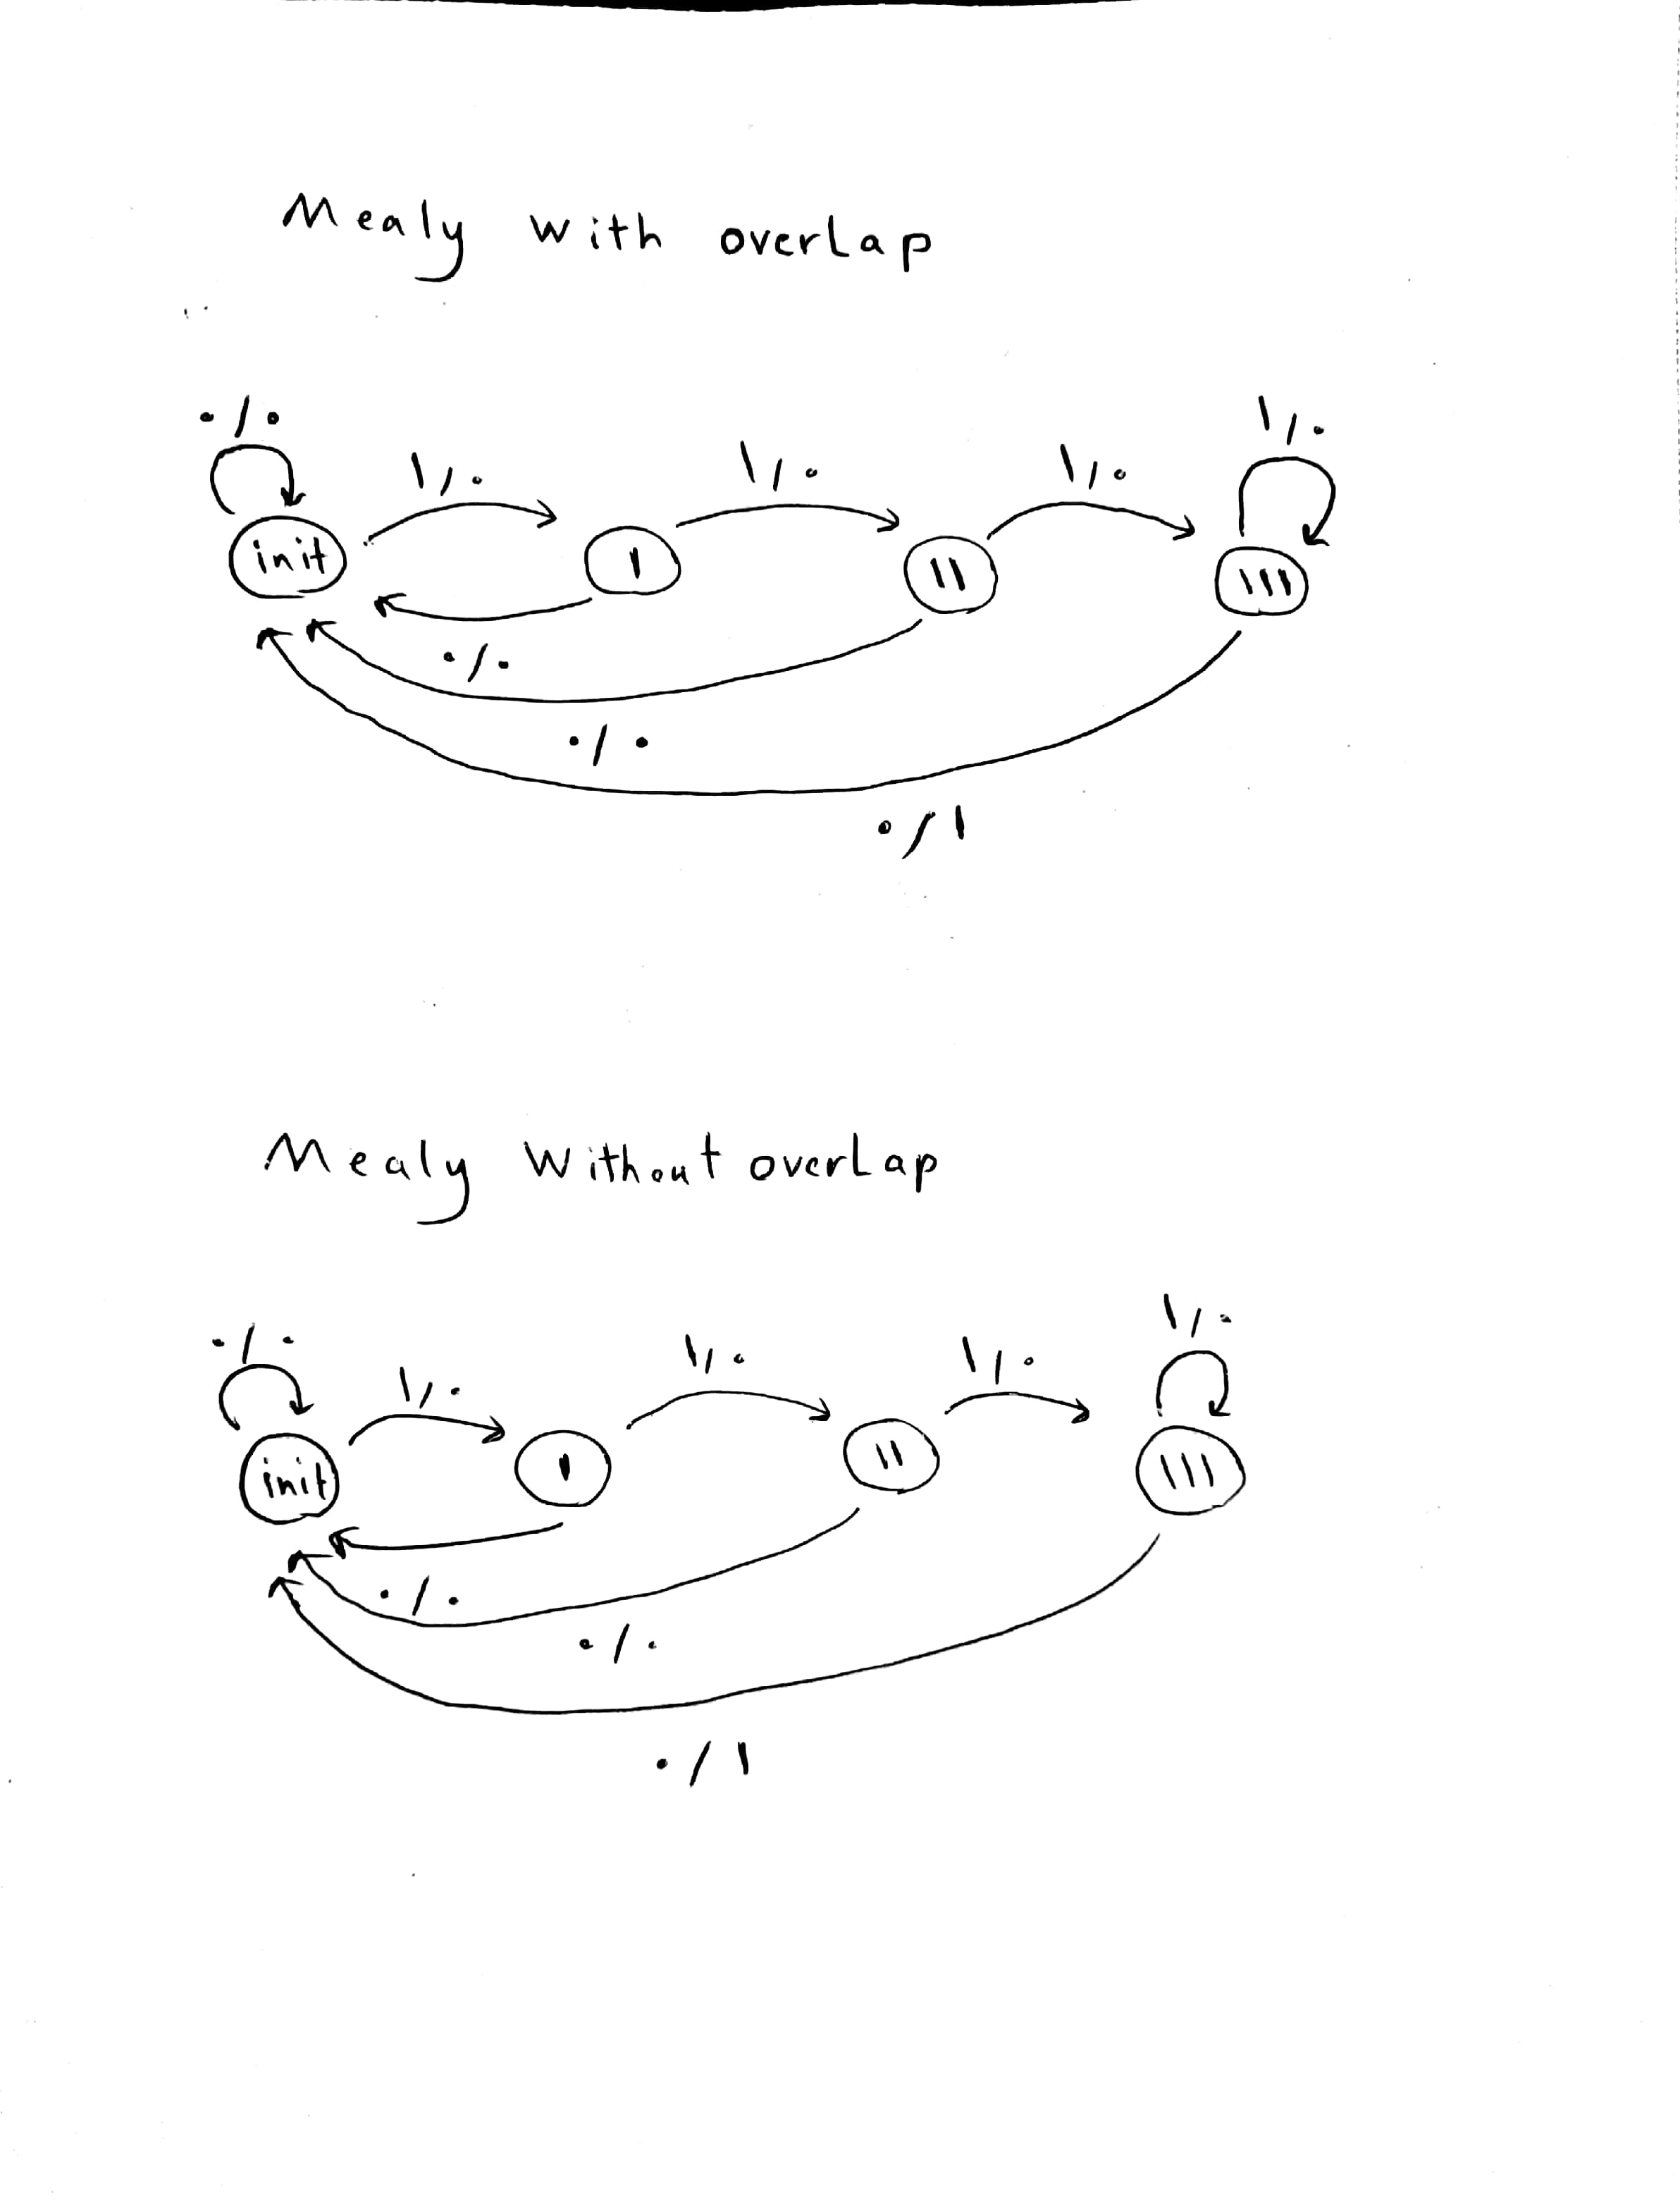 Mealy with overlap
0/0
1/0
1/0
1/0
1/0
init
1
11
111
0/0
0/0
0/1
Mealy without overlap
0/0
1/0
1/0
1/0
1/0
init
1
11
111
0/0
0/0
0/1